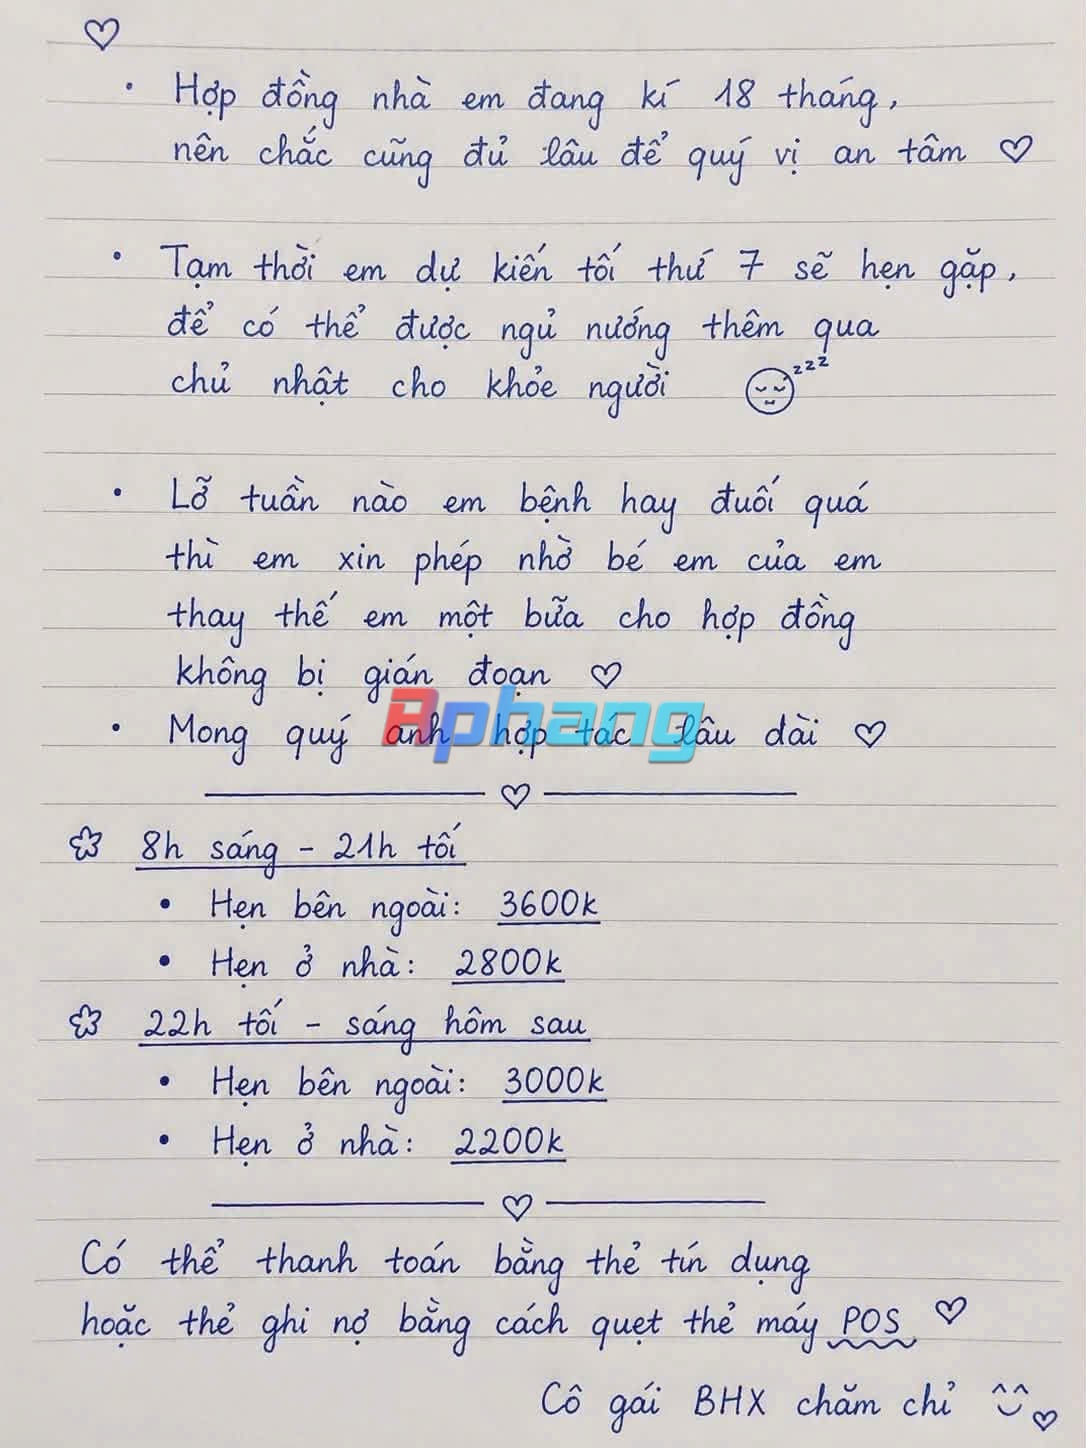 Hợp đồng nhà em đang kí 18 tháng,
nên chắc cũng đủ lâu để quý vị an tâm
Tạm thời em dự kiến tối thứ 7 sẽ hẹn gặp,
để có thể được ngủ nướng thêm qua
chủ nhật cho khỏe người
zzz
Lỡ tuần nào em bệnh hay đuối quá
thì em xin phép nhờ bé em của em
thay thế em một bữa cho hợp đồng
không bị gián đoạn
Mong quý anh hợp tác lâu dài
Rphang
8h sáng - 21h tối
Hẹn bên ngoài: 3600k
Hẹn ở nhà: 2800k
22h tối - sáng hôm sau
Hẹn bên ngoài: 3000k
Hẹn ở nhà: 2200k
Có thể thanh toán bằng thẻ tín dụng
hoặc thẻ ghi nợ bằng cách quẹt thẻ máy POS
Cô gái BHX chăm chỉ ^^